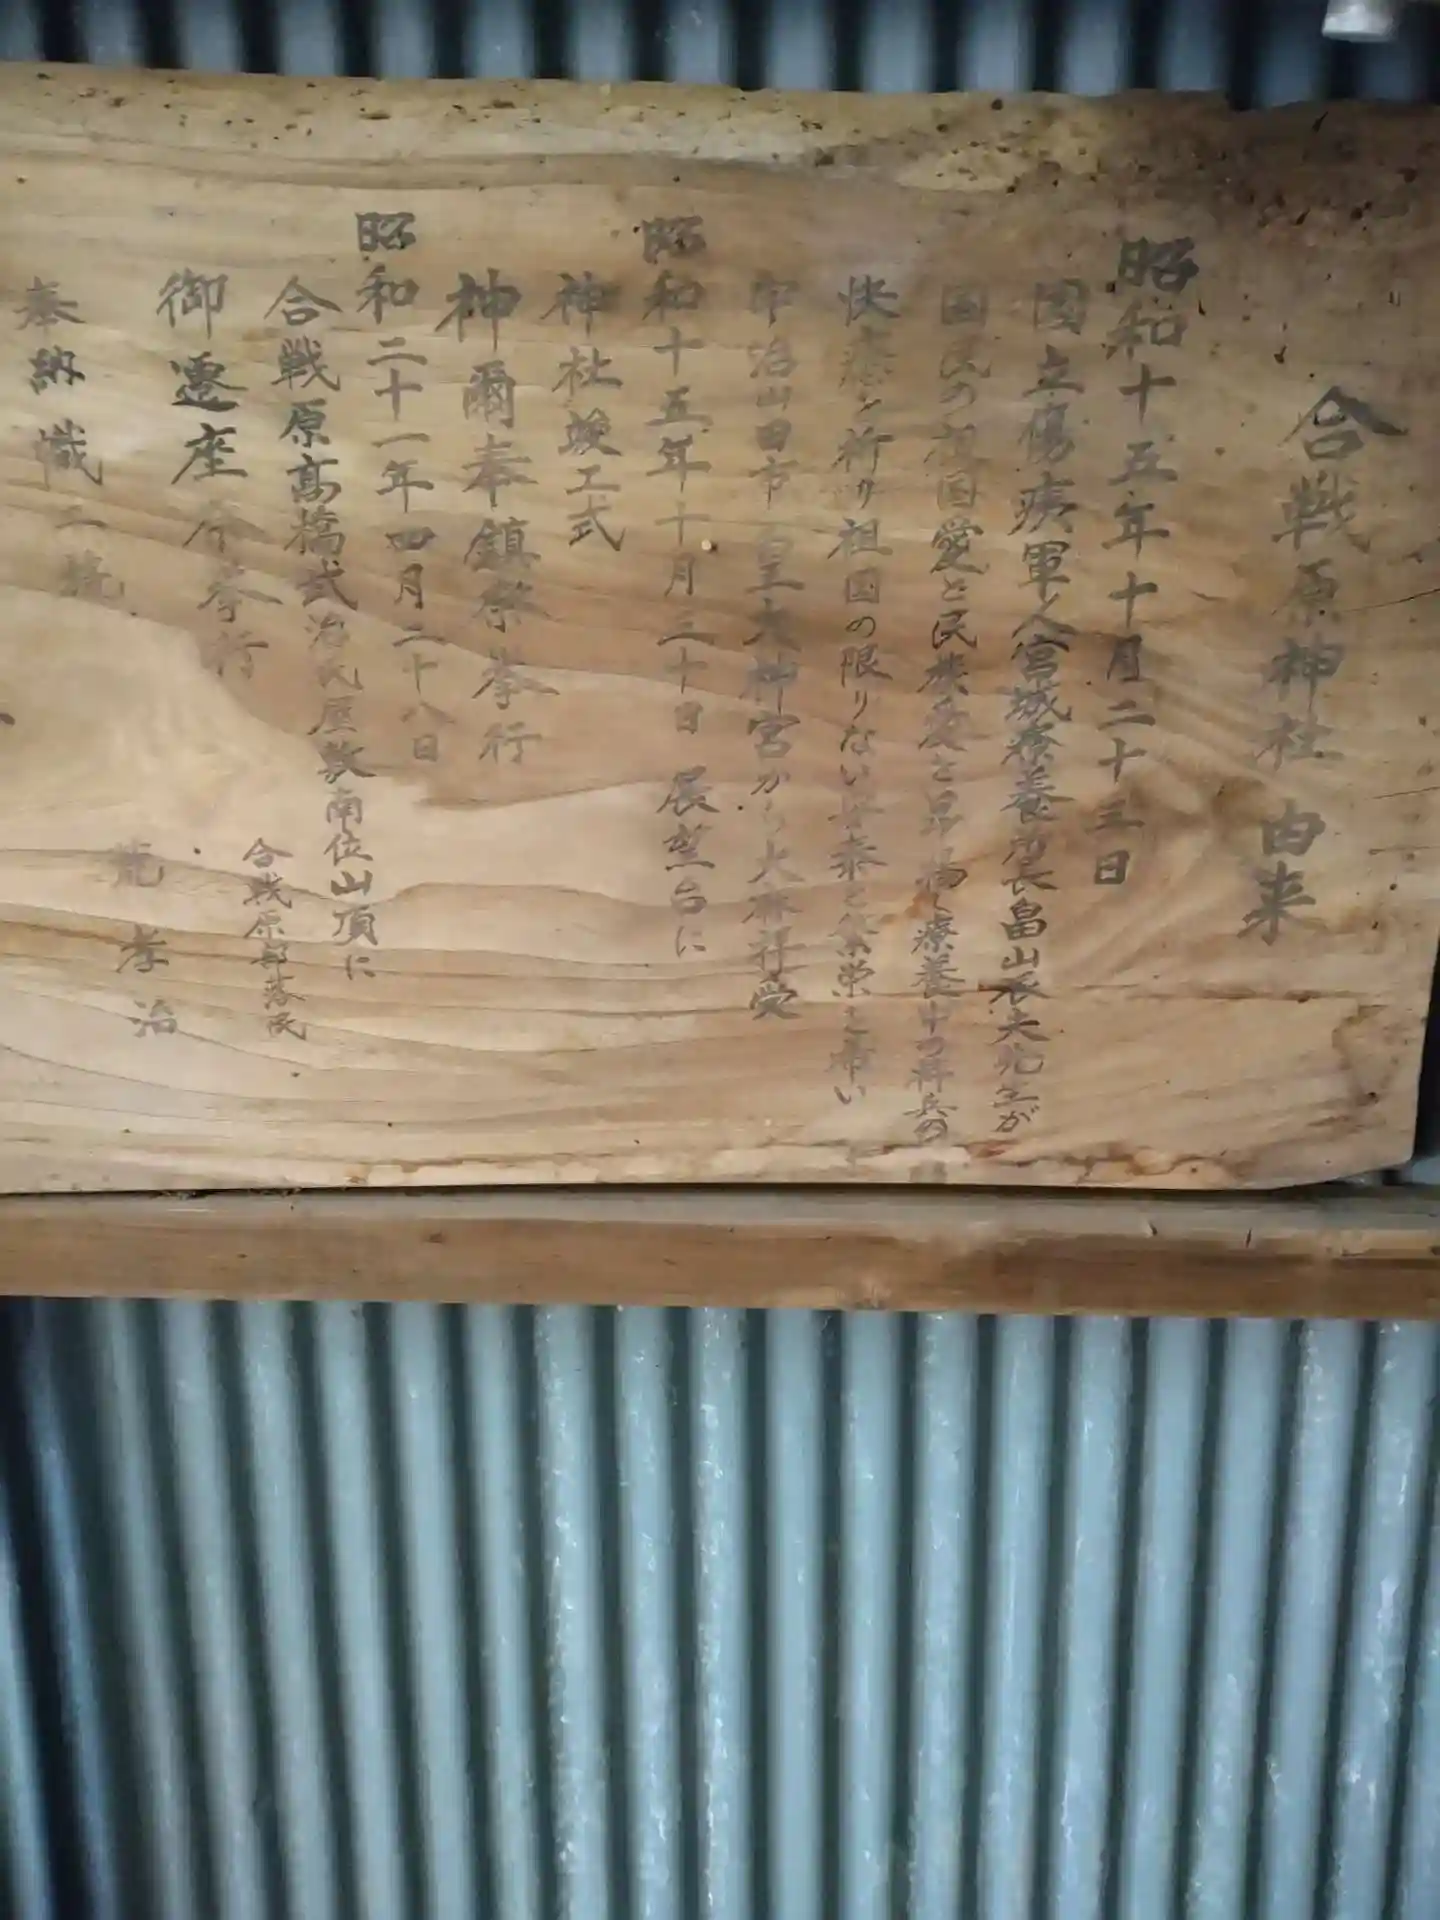 合戦原神社 由来
昭和十五年十月二十三日
國立傷痍軍人宮城療養所長畠山辰夫先生が
国民の祖国愛と民族愛を昂揚し療養中の将兵の
快癒を祈り祖国の限りない安泰と繁栄を希い
宇治山田市皇大神宮から大麻拝受
昭和十五年十月三十日 展望台に
神社竣工式
神爾奉鎮祭挙行
昭和二十一年四月二十八日
合戦原高橋武治氏屋敷南位山頂に
御遷座祭挙行
合戦原部落民
奉納幟一
孝治